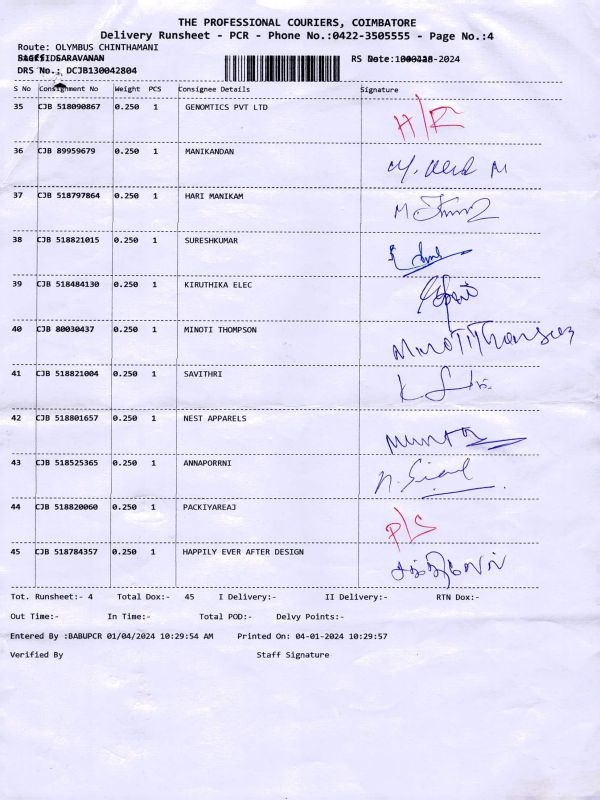 THE PROFESSIONAL COURIERS, COIMBATORE
Delivery Runsheet - PCR - Phone No.:0422-3505555 - Page No.:4
Route: OLYMBUS CHINTHAMANI
SARAVANAN RS Date: -2024
DRS No.: DCJB130042804
S No Consignment No Weight PCS Consignee Details Signature
35 CJB 518090867 0.250 1 GENOMTICS PVT LTD H/R
36 CJB 89959679 0.250 1 MANIKANDAN
37 CJB 518797864 0.250 1 HARI MANIKAM
38 CJB 518821015 0.250 1 SURESHKUMAR
39 CJB 518484130 0.250 1 KIRUTHIKA ELEC
40 CJB 80030437 0.250 1 MINOTI THOMPSON
41 CJB 518821004 0.250 1 SAVITHRI
42 CJB 518801657 0.250 1 NEST APPARELS
43 CJB 518525365 0.250 1 ANNAPORRNI
44 CJB 518820060 0.250 1 PACKIYAREAJ P/S
45 CJB 518784357 0.250 1 HAPPILY EVER AFTER DESIGN
Tot. Runsheet:- 4 Total Dox:- 45 I Delivery:- II Delivery:- RTN Dox:-
Out Time:- In Time:- Total POD:- Delvy Points:-
Entered By :BABUPCR 01/04/2024 10:29:54 AM Printed On: 04-01-2024 10:29:57
Verified By Staff Signature